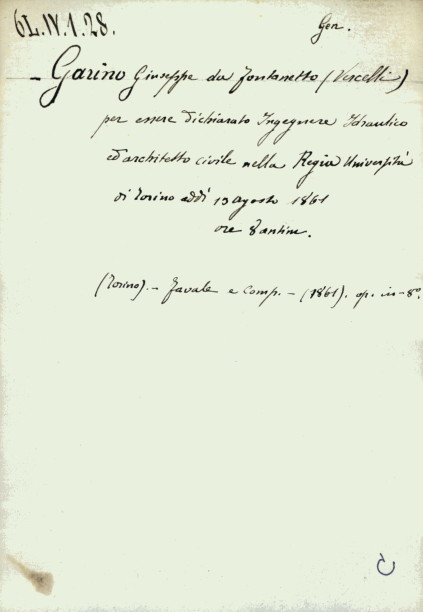 6L.IV.1.28.
Gen.
- Garino Giuseppe da Fontanetto (Vercelli)
per essere dichiarato Ingegnere Idraulico
ed architetto civile nella Regia Università
di Torino addì 13 agosto 1861
ore 8 antim.
(Torino). - Favale e Comp. - (1861). op. in-8°.